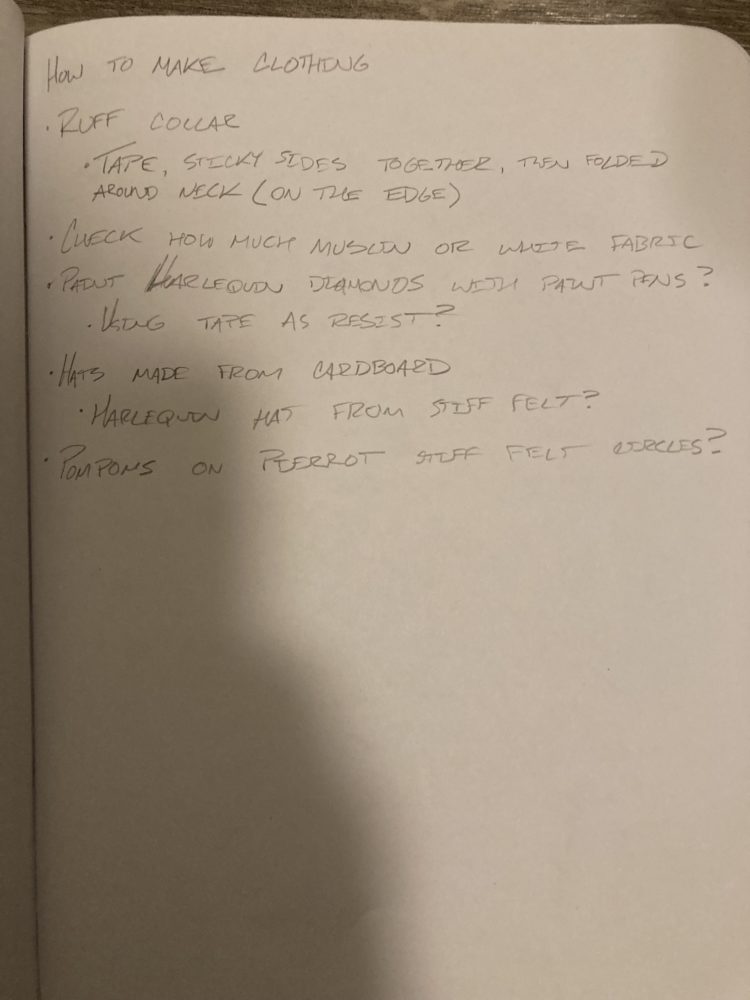 HOW TO MAKE CLOTHING
• RUFF COLLAR
• TAPE, STICKY SIDES TOGETHER, THEN FOLDED
AROUND NECK (ON THE EDGE)
• CHECK HOW MUCH MUSLIN OR WHITE FABRIC
• PAINT HARLEQUIN DIAMONDS WITH PAINT PENS?
• USING TAPE AS RESIST?
• HATS MADE FROM CARDBOARD
• HARLEQUIN HAT FROM STIFF FELT?
• POMPOMS ON PIERROT STIFF FELT CIRCLES?